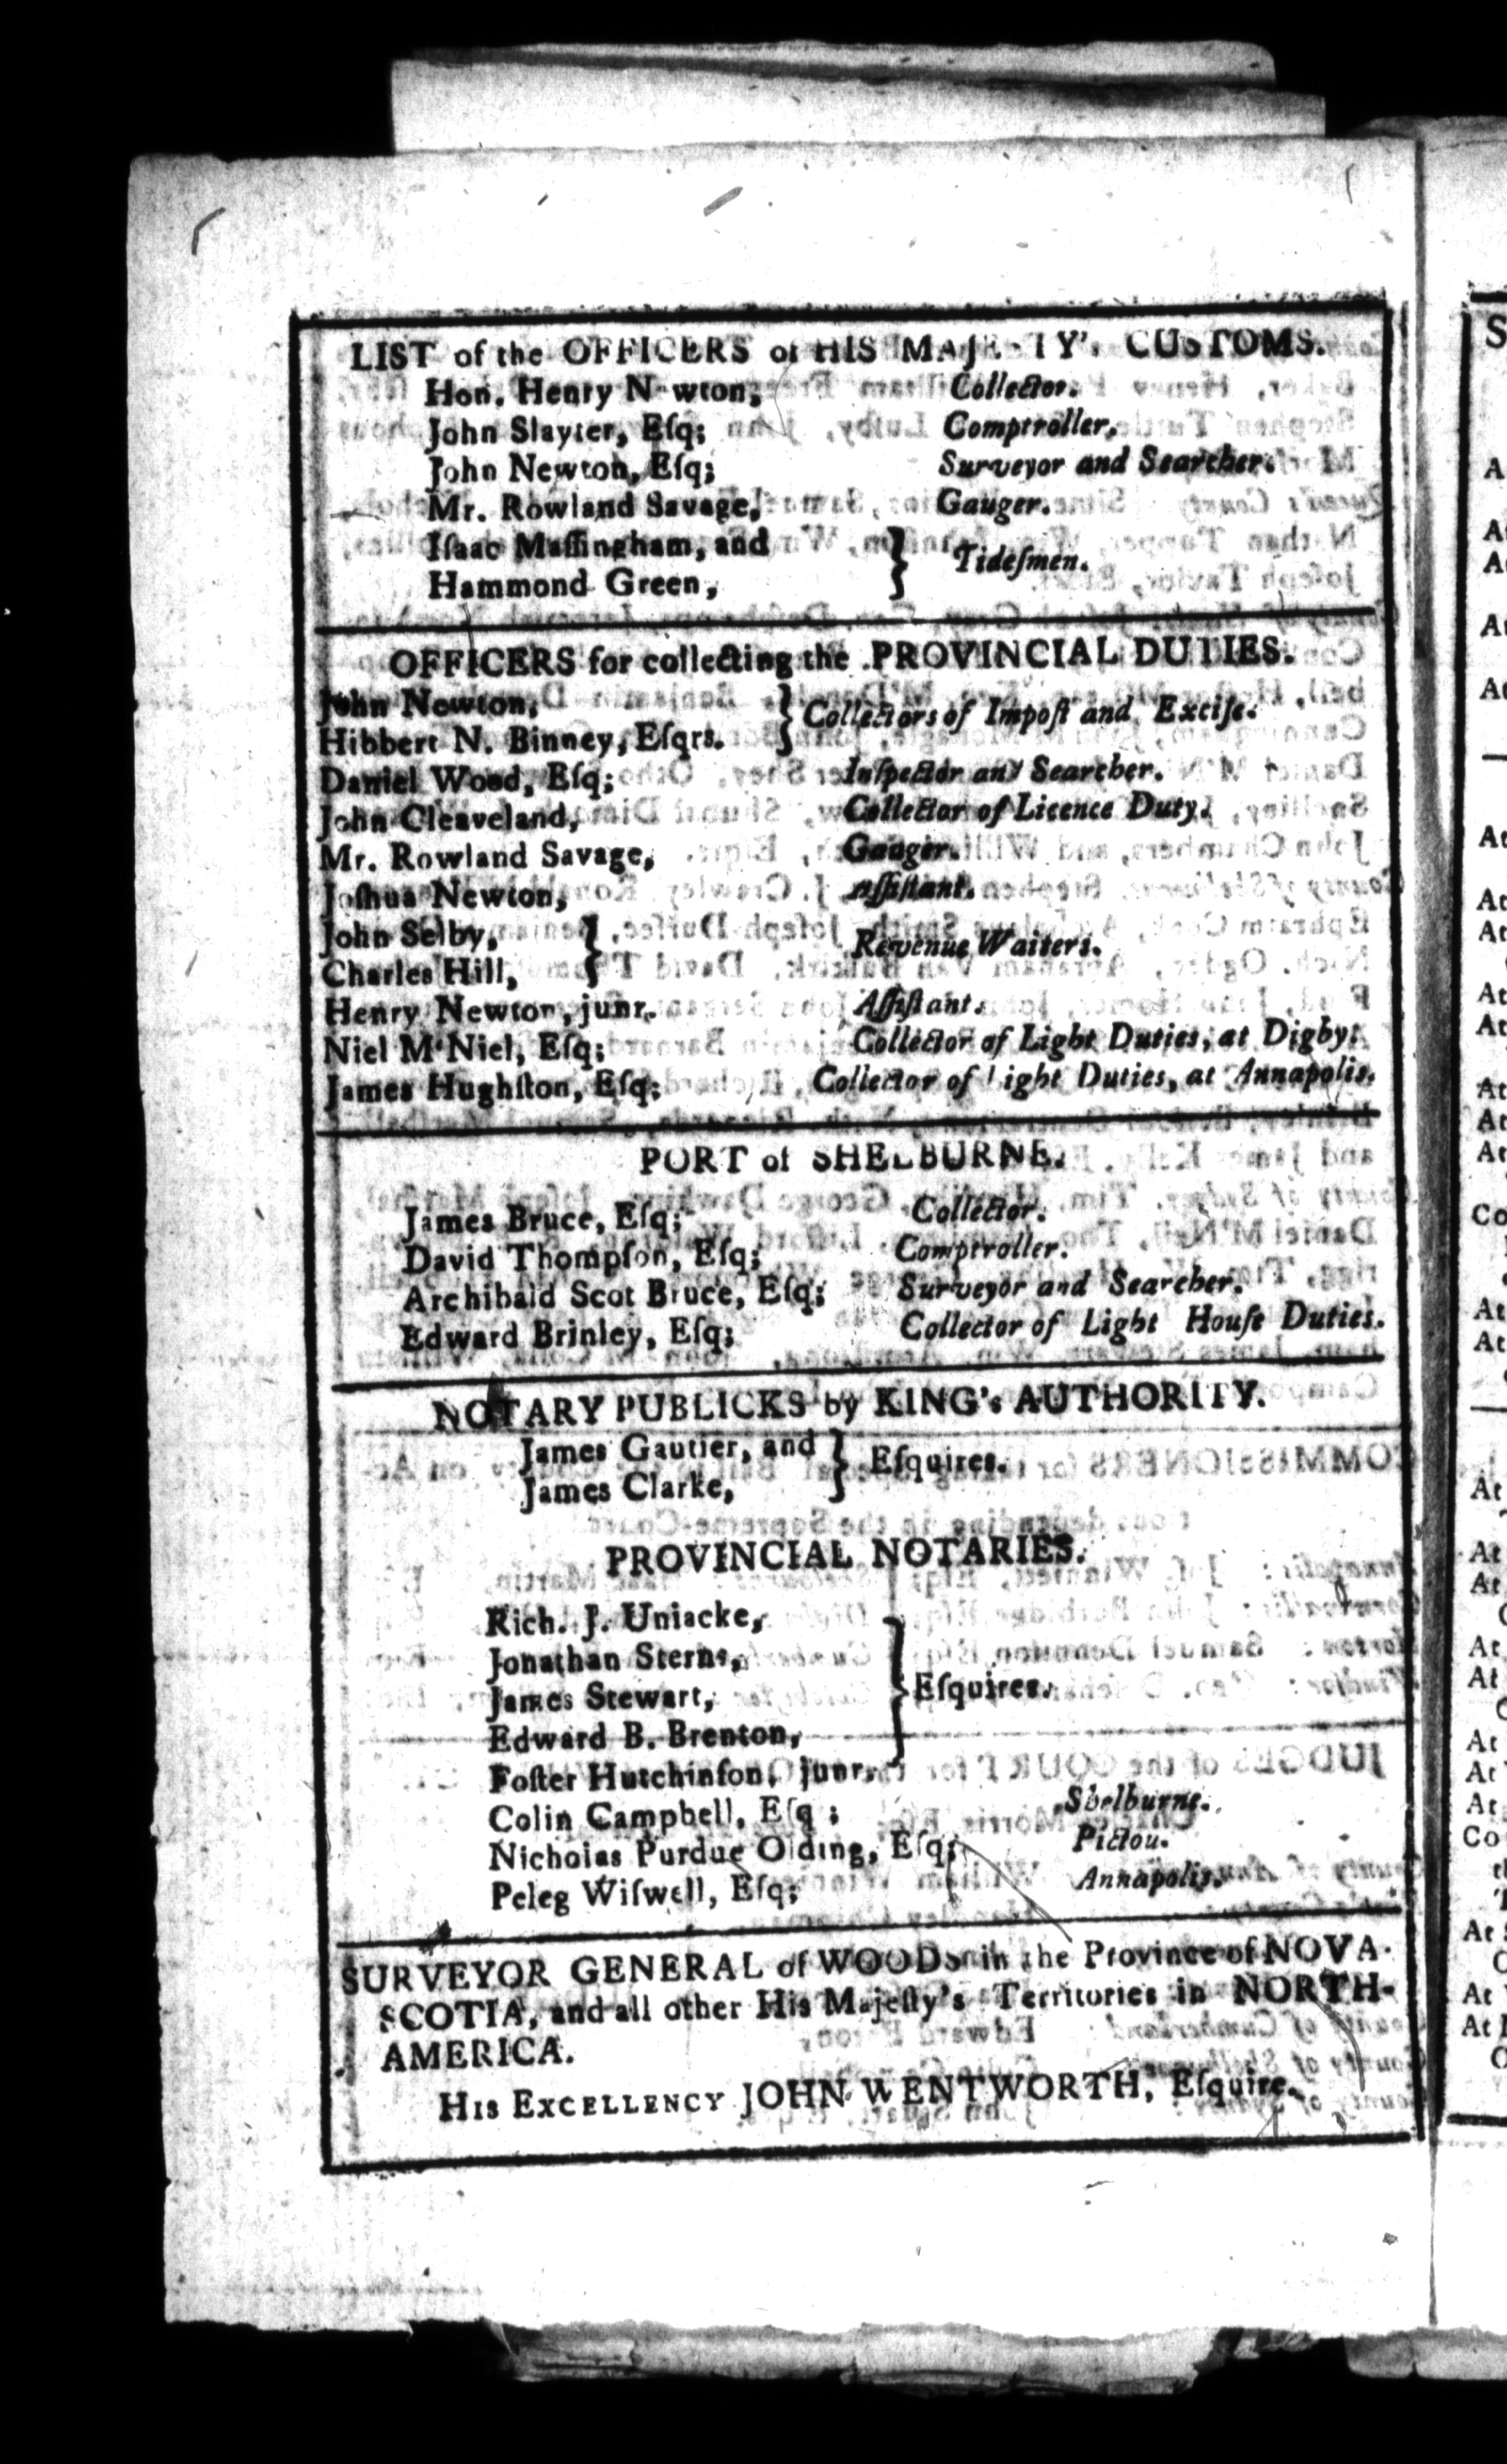 LIST of the OFFICERS of HIS MAJESTY's CUSTOMS.
Hon. Henry Newton, Collector.
John Slayter, Eſq; Comptroller.
John Newton, Eſq; Surveyor and Searcher.
Mr. Rowland Savage, Gauger.
Iſaac Maſſingham, and
Hammond Green, } Tideſmen.
OFFICERS for collecting the PROVINCIAL DUTIES.
John Newton,
Hibbert N. Binney, Eſqrs. } Collectors of Impoſt and Exciſe.
Daniel Wood, Eſq; Inſpector and Searcher.
John Cleaveland, Collector of Licence Duty.
Mr. Rowland Savage, Gauger.
Joſhua Newton, Aſſiſtant.
John Selby,
Charles Hill, } Revenue Waiters.
Henry Newton, junr. Aſſiſtant.
Niel M'Niel, Eſq; Collector of Light Duties, at Digby.
James Hughſton, Eſq; Collector of Light Duties, at Annapolis.
PORT of SHELBURNE.
James Bruce, Eſq; Collector.
David Thompſon, Eſq; Comptroller.
Archibald Scot Bruce, Eſq; Surveyor and Searcher.
Edward Brinley, Eſq; Collector of Light Houſe Duties.
NOTARY PUBLICKS by KING's AUTHORITY.
James Gautier, and
James Clarke, } Eſquires.
PROVINCIAL NOTARIES.
Rich. J. Uniacke,
Jonathan Sterns,
James Stewart, } Eſquires.
Edward B. Brenton,
Foſter Hutchinſon, junr.
Colin Campbell, Eſq; Shelburne.
Nicholas Purdue Olding, Eſq; Pictou.
Peleg Wiſwell, Eſq; Annapolis.
SURVEYOR GENERAL of WOODS in the Province of NOVA-
SCOTIA, and all other His Majeſty's Territories in NORTH-
AMERICA.
HIS EXCELLENCY JOHN WENTWORTH, Eſquire.